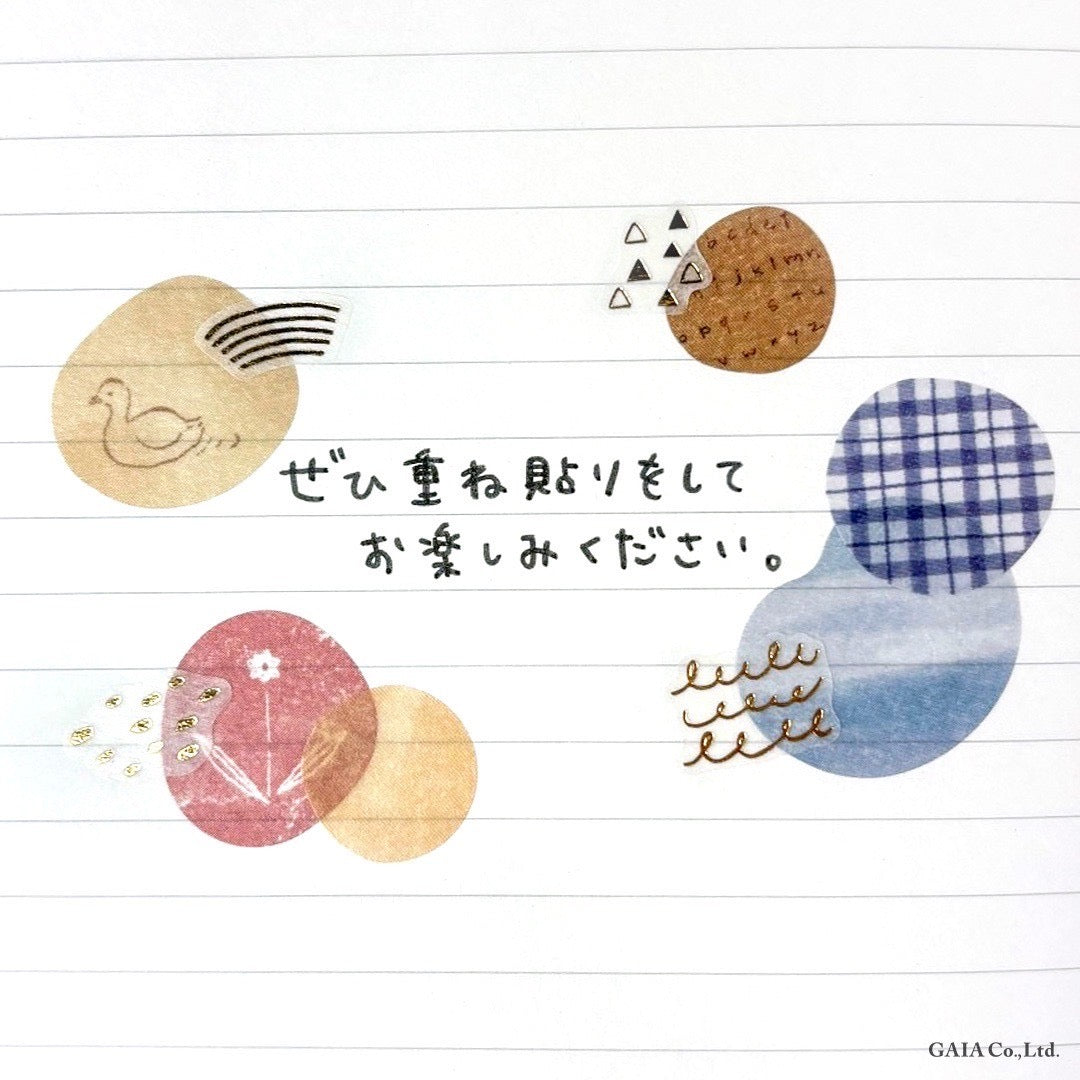 bcdef
jklmn
opqrstu
vwxyz
ぜひ重ね貼りをして
お楽しみください。
GAIA Co.,Ltd.